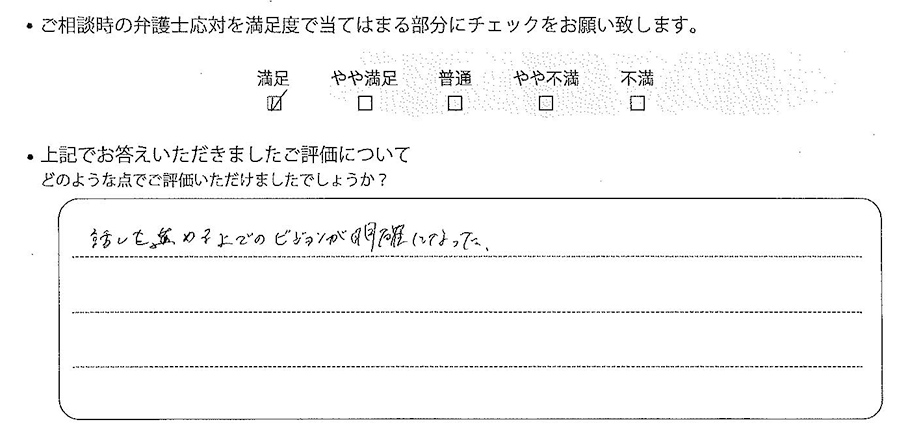 ・ご相談時の弁護士応対を満足度で当てはまる部分にチェックをお願い致します。
満足 やや満足 普通 やや不満 不満
☑ □ □ □ □
・上記でお答えいただきましたご評価について
どのような点でご評価いただけましたでしょうか？
話しを進める上でのビジョンが明確になった。